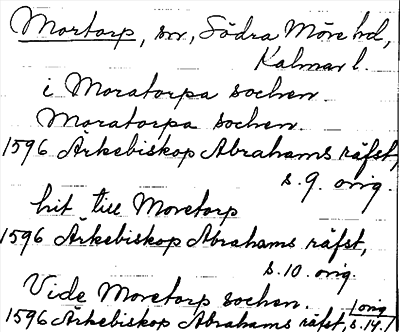 Mortorp, sn, Södra Möre hd,
Kalmar l.
i Moratorpa sochen
Moratorpa sochen.
1596 Ärkebiskop Abrahams räfst,
s.9. orig.
hit till Moretorp
1596 Ärkebiskop Abrahams räfst,
s.10. orig.
Vide Moretorp sochen.
1596 Ärkebiskop Abrahams räfst, s.14. orig